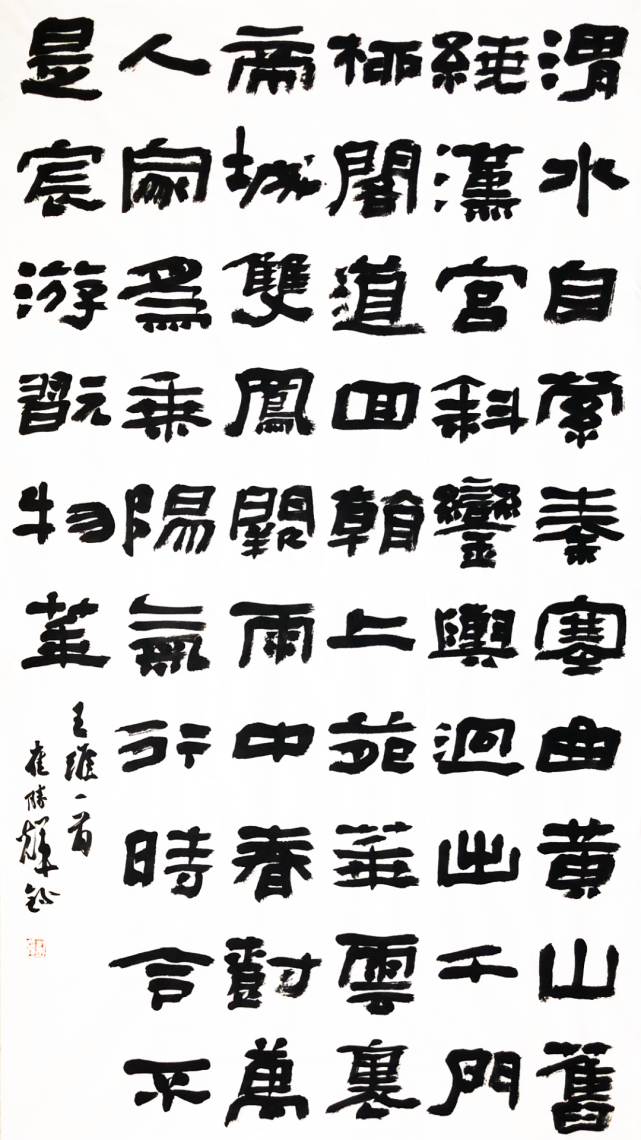 渭水自縈秦塞曲黄山舊
繞漢宮斜鑾輿迥出千門
柳閣道回朝上苑華雲裏
帝城雙鳳闕雨中春樹萬
人家爲乘陽氣行時令不
是宸游翫物華
王維一首
崔勝輝錄